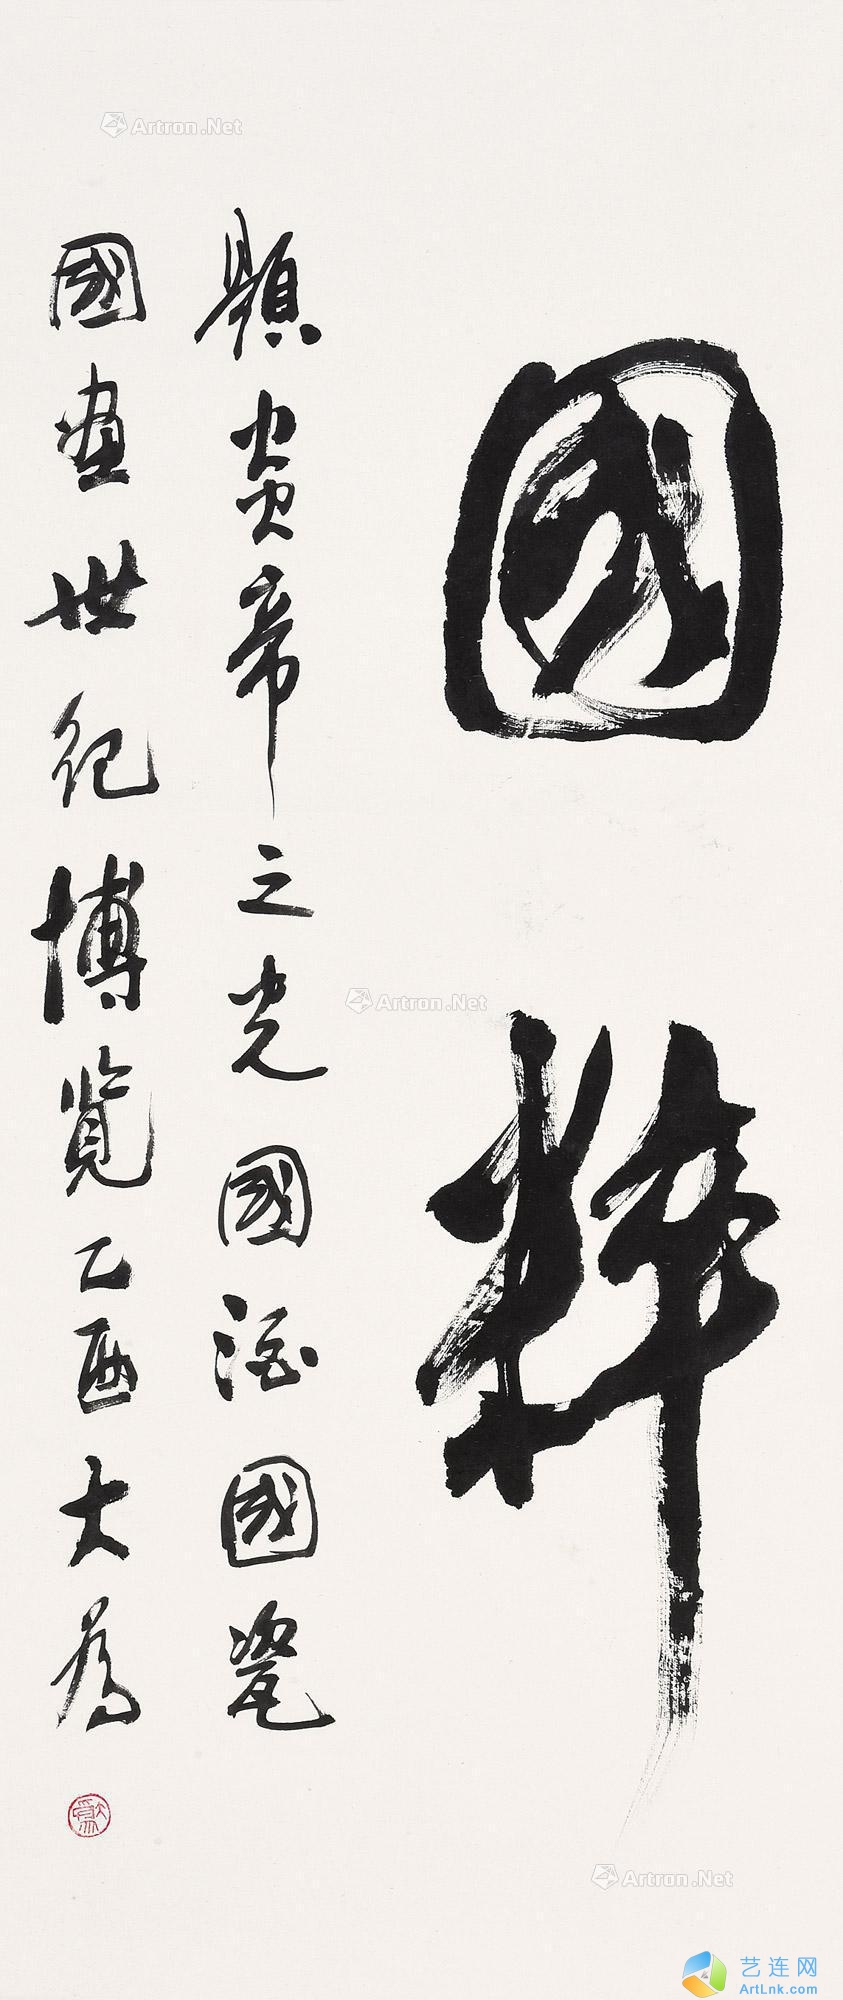 國粹
題炎帝之光國酒國瓷
國畫世纪博览乙酉大為
Artron.Net
Artron.Net
Artron.Net
艺连网
ArtLnk.com